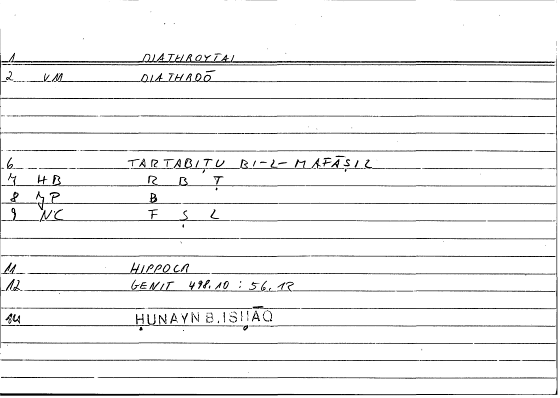 1 DIATHROYTAI
2 V.M DIATHRŌ
6 TARTABIṬU BI-L-MAFĀṢIL
7 HB R B Ṭ
8 YP B
9 NC F Ṣ L
11 HIPPOCR
12 GENIT 498.10 : 56.12
14 ḤUNAYN B.ISḤĀQ